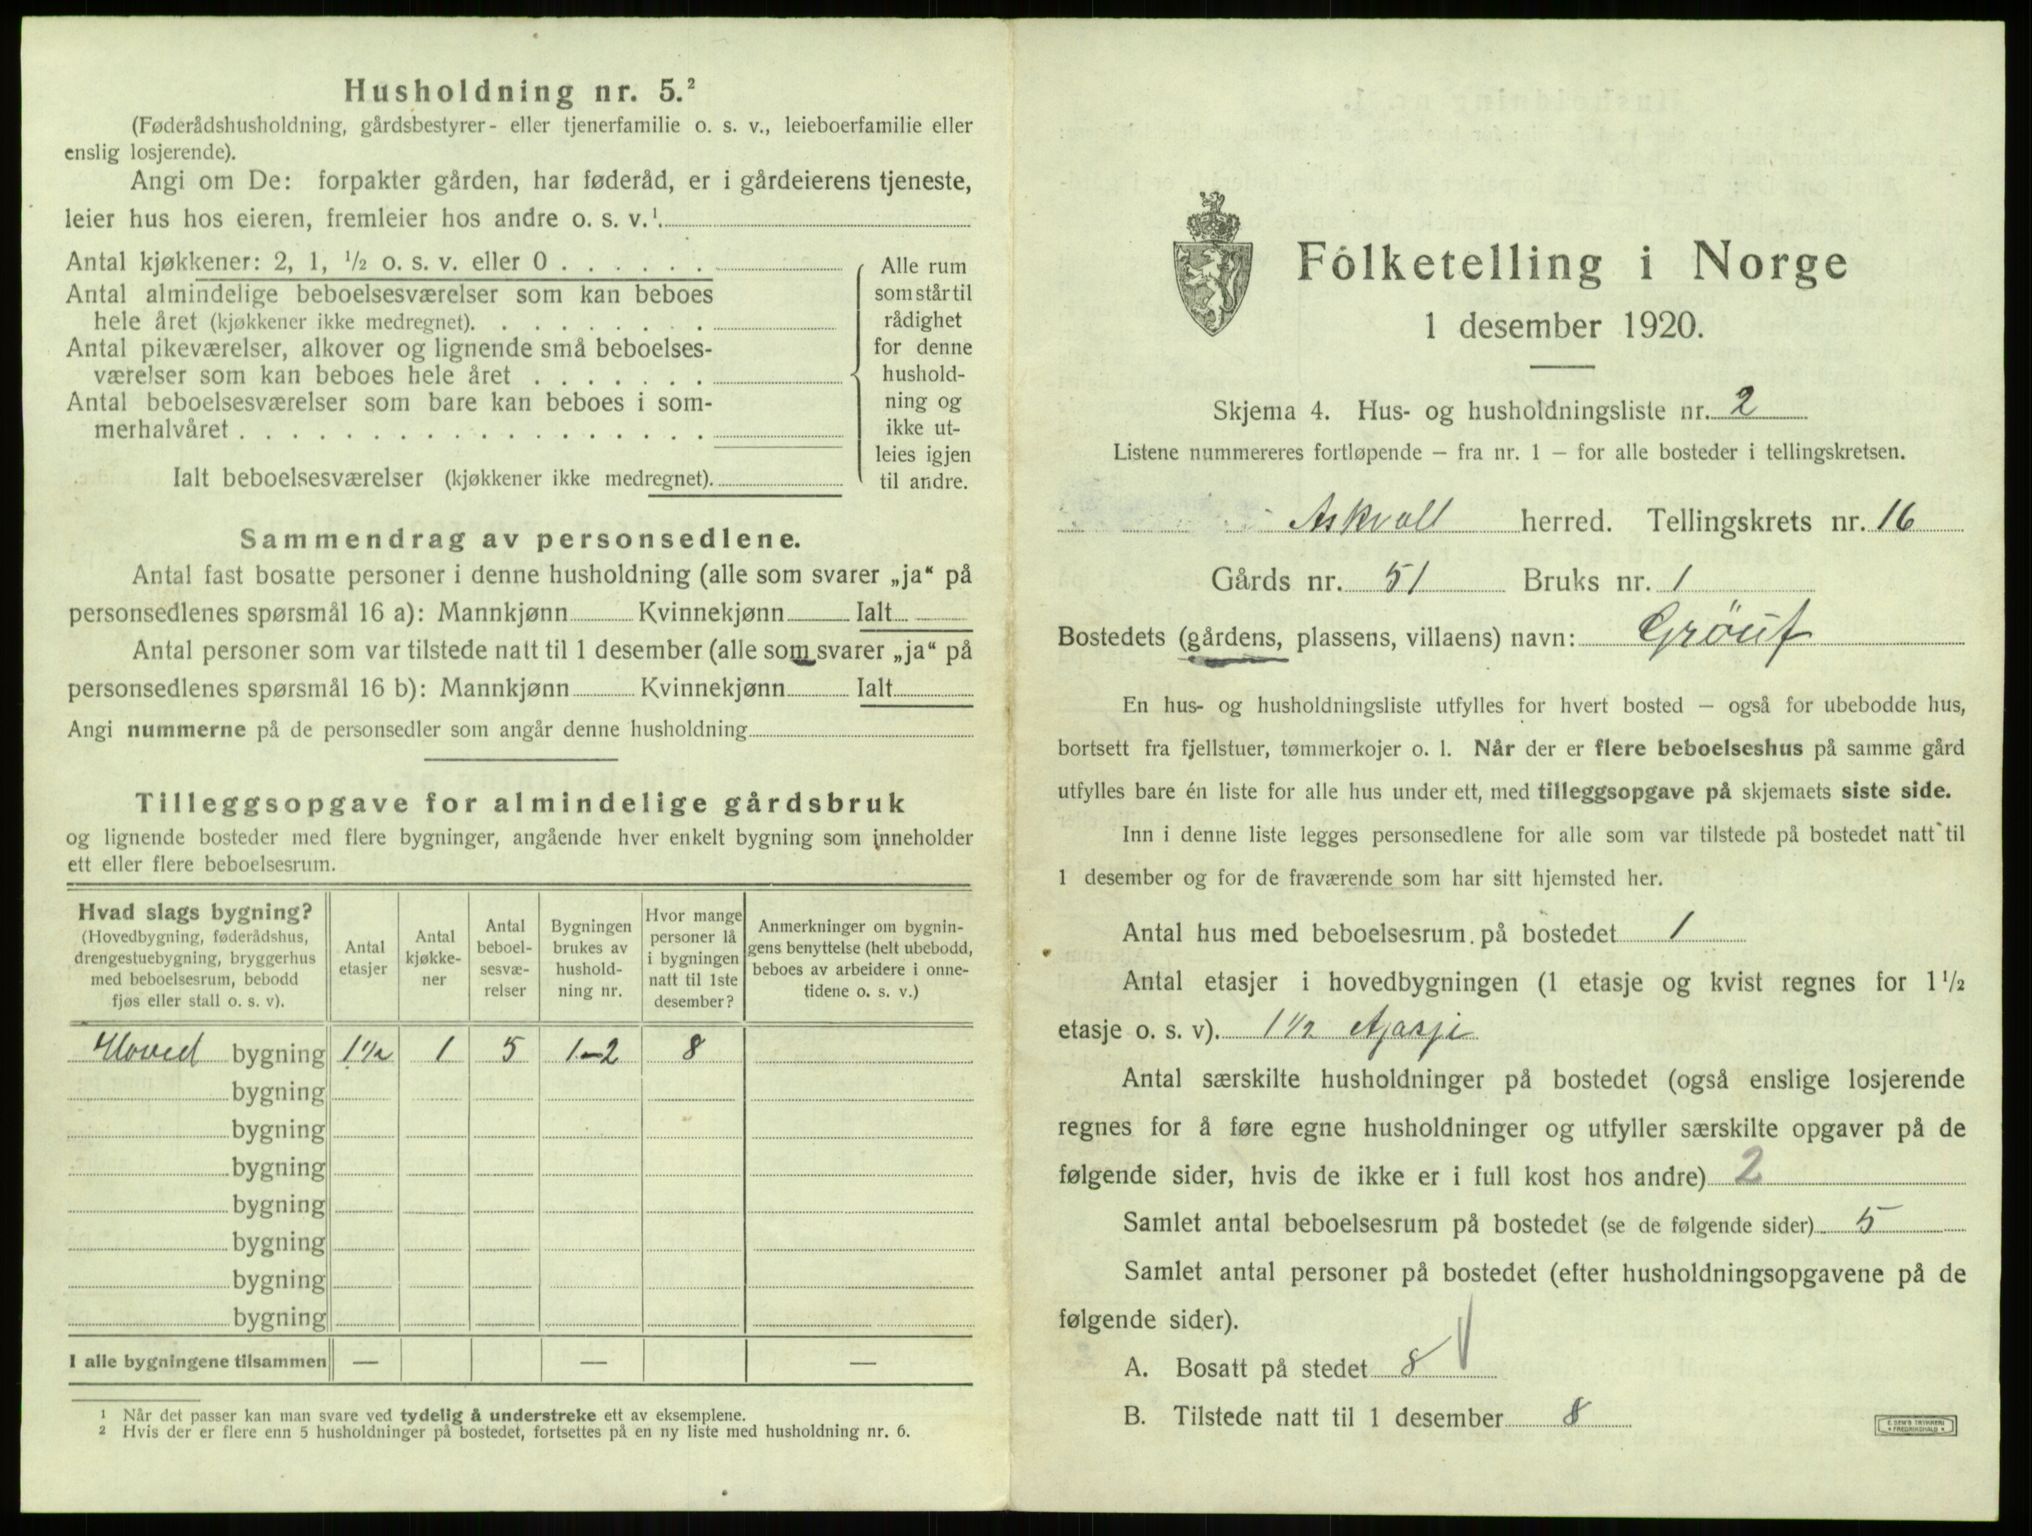 Husholdning nr. 5.²
(Føderådshusholdning, gårdsbestyrer- eller tjenerfamilie o. s. v., leieboerfamilie eller
enslig losjerende).
Angi om De: forpakter gården, har føderåd, er i gårdeierens tjeneste,
leier hus hos eieren, fremleier hos andre o. s. v.¹
Antal kjøkkener: 2, 1, ½ o. s. v. eller 0 . . . . . .
Antal almindelige beboelsesværelser som kan beboes
hele året (kjøkkener ikke medregnet). . . . . . . . .
Antal pikeværelser, alkover og lignende små beboelses-
værelser som kan beboes hele året . . . . . . .
Antal beboelsesværelser som bare kan beboes i som-
merhalvåret . . . . . . . . . . . . . . . . . .
Ialt beboelsesværelser (kjøkkener ikke medregnet).
Alle rum
som står til
rådighet
for denne
hushold-
ning og
ikke ut-
leies igjen
til andre.
Sammendrag av personsedlene.
Antal fast bosatte personer i denne husholdning (alle som svarer „ja“ på
personsedlenes spørsmål 16 a): Mannkjønn Kvinnekjønn Ialt
Antal personer som var tilstede natt til 1 desember (alle som svarer „ja“ på
personsedlenes spørsmål 16 b): Mannkjønn Kvinnekjønn Ialt
Angi nummerne på de personsedler som angår denne husholdning
Tilleggsopgave for almindelige gårdsbruk
og lignende bosteder med flere bygninger, angående hver enkelt bygning som inneholder
ett eller flere beboelsesrum.
Hvad slags bygning?
(Hovedbygning, føderådshus,
drengestuebygning, bryggerhus
med beboelsesrum, bebodd
fjøs eller stall o. s. v).
Antal
etasjer
Antal
kjøkke-
ner
Antal
beboel-
sesvæ-
relser
Bygningen
brukes av
hushold-
ning nr.
Hvor mange
personer lå
i bygningen
natt til 1ste
desember?
Anmerkninger om bygnin-
gens benyttelse (helt ubebodd,
beboes av arbeidere i onne-
tidene o. s. v.)
Hoved bygning 1½ 1 5 1-2 8
bygning
bygning
bygning
bygning
bygning
bygning
bygning
I alle bygningene tilsammen — — —
¹ Når det passer kan man svare ved tydelig å understreke ett av eksemplene.
² Hvis der er flere enn 5 husholdninger på bostedet, fortsettes på en ny liste med husholdning nr. 6.
Folketelling i Norge
1 desember 1920.
Skjema 4. Hus- og husholdningsliste nr. 2
Listene nummereres fortløpende – fra nr. 1 – for alle bosteder i tellingskretsen.
Askvoll herred. Tellingskrets nr. 16
Gårds nr. 51 Bruks nr. 1
Bostedets (gårdens, plassens, villaens) navn: Grøuf
En hus- og husholdningsliste utfylles for hvert bosted – også for ubebodde hus,
bortsett fra fjellstuer, tømmerkojer o. l. Når der er flere beboelseshus på samme gård
utfylles bare én liste for alle hus under ett, med tilleggsopgave på skjemaets siste side.
Inn i denne liste legges personsedlene for alle som var tilstede på bostedet natt til
1 desember og for de fraværende som har sitt hjemsted her.
Antal hus med beboelsesrum på bostedet 1
Antal etasjer i hovedbygningen (1 etasje og kvist regnes for 1½
etasje o. s. v). 1½
Antal særskilte husholdninger på bostedet (også enslige losjerende
regnes for å føre egne husholdninger og utfyller særskilte opgaver på de
følgende sider, hvis de ikke er i full kost hos andre) 2
Samlet antal beboelsesrum på bostedet (se de følgende sider) 5
Samlet antal personer på bostedet (efter husholdningsopgavene på de
følgende sider).
A. Bosatt på stedet 8
B. Tilstede natt til 1 desember 8
E. SEM'S TRYKKERI
FREDRIKSHALD